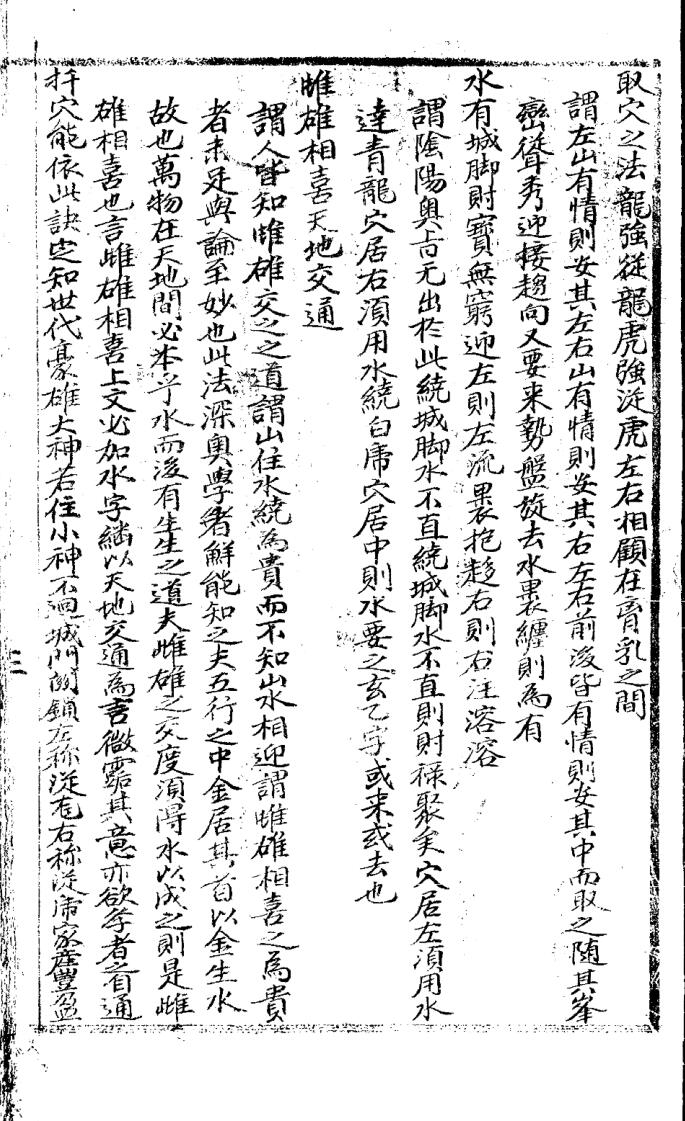 取穴之法龍強從龍虎強從虎左右相顧在盲乳之間
謂左山有情則安其左右山有情則安其右左右前後皆有情則安其中而取之隨其峯
巒聳秀迎接趨向又要来勢盤旋去水裹纏則為有
水有城脚財寶無窮迎左則左流裹抱趍右則右注溶溶
謂陰陽奥旨无出於此繞城脚水不直繞城脚水不直則財禄聚矣穴居左湏用水
逹青龍穴居右湏用水繞白虎穴居中則水要之玄乙字或来或去也
雌雄相喜天地交通
謂人皆知雌雄交之之道謂山住水繞為貴而不知山水相迎謂雌雄相喜之為貴
者未足與論至妙也此法深奥學者鮮能知之夫五行之中金居其首以金生水
故也萬物在天地間必本乎水而後有生生之道夫雌雄之交度湏得水以成之則是雌
雄相喜也言雌雄相喜上文必加水字継以天地交通為言微露其意亦欲孝者之自通
扦穴能依此訣定知世代豪雄大神若住小神不迴城門関鎖左称從右称從虎家產豐盈
三